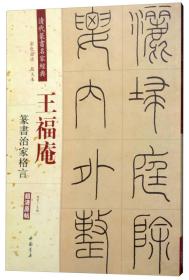 清代篆書名家經典
王福庵
篆書治家格言
灑埽庭除
要内外整